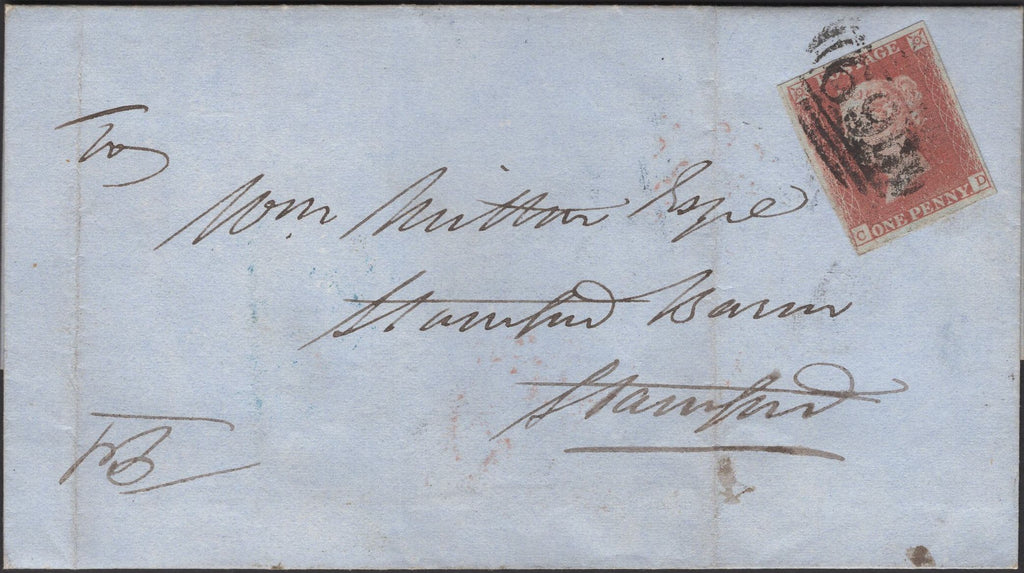 POSTAGE
C D
ONE PENNY
Wm Mitton Esqre
Stamford Baron
Stamford